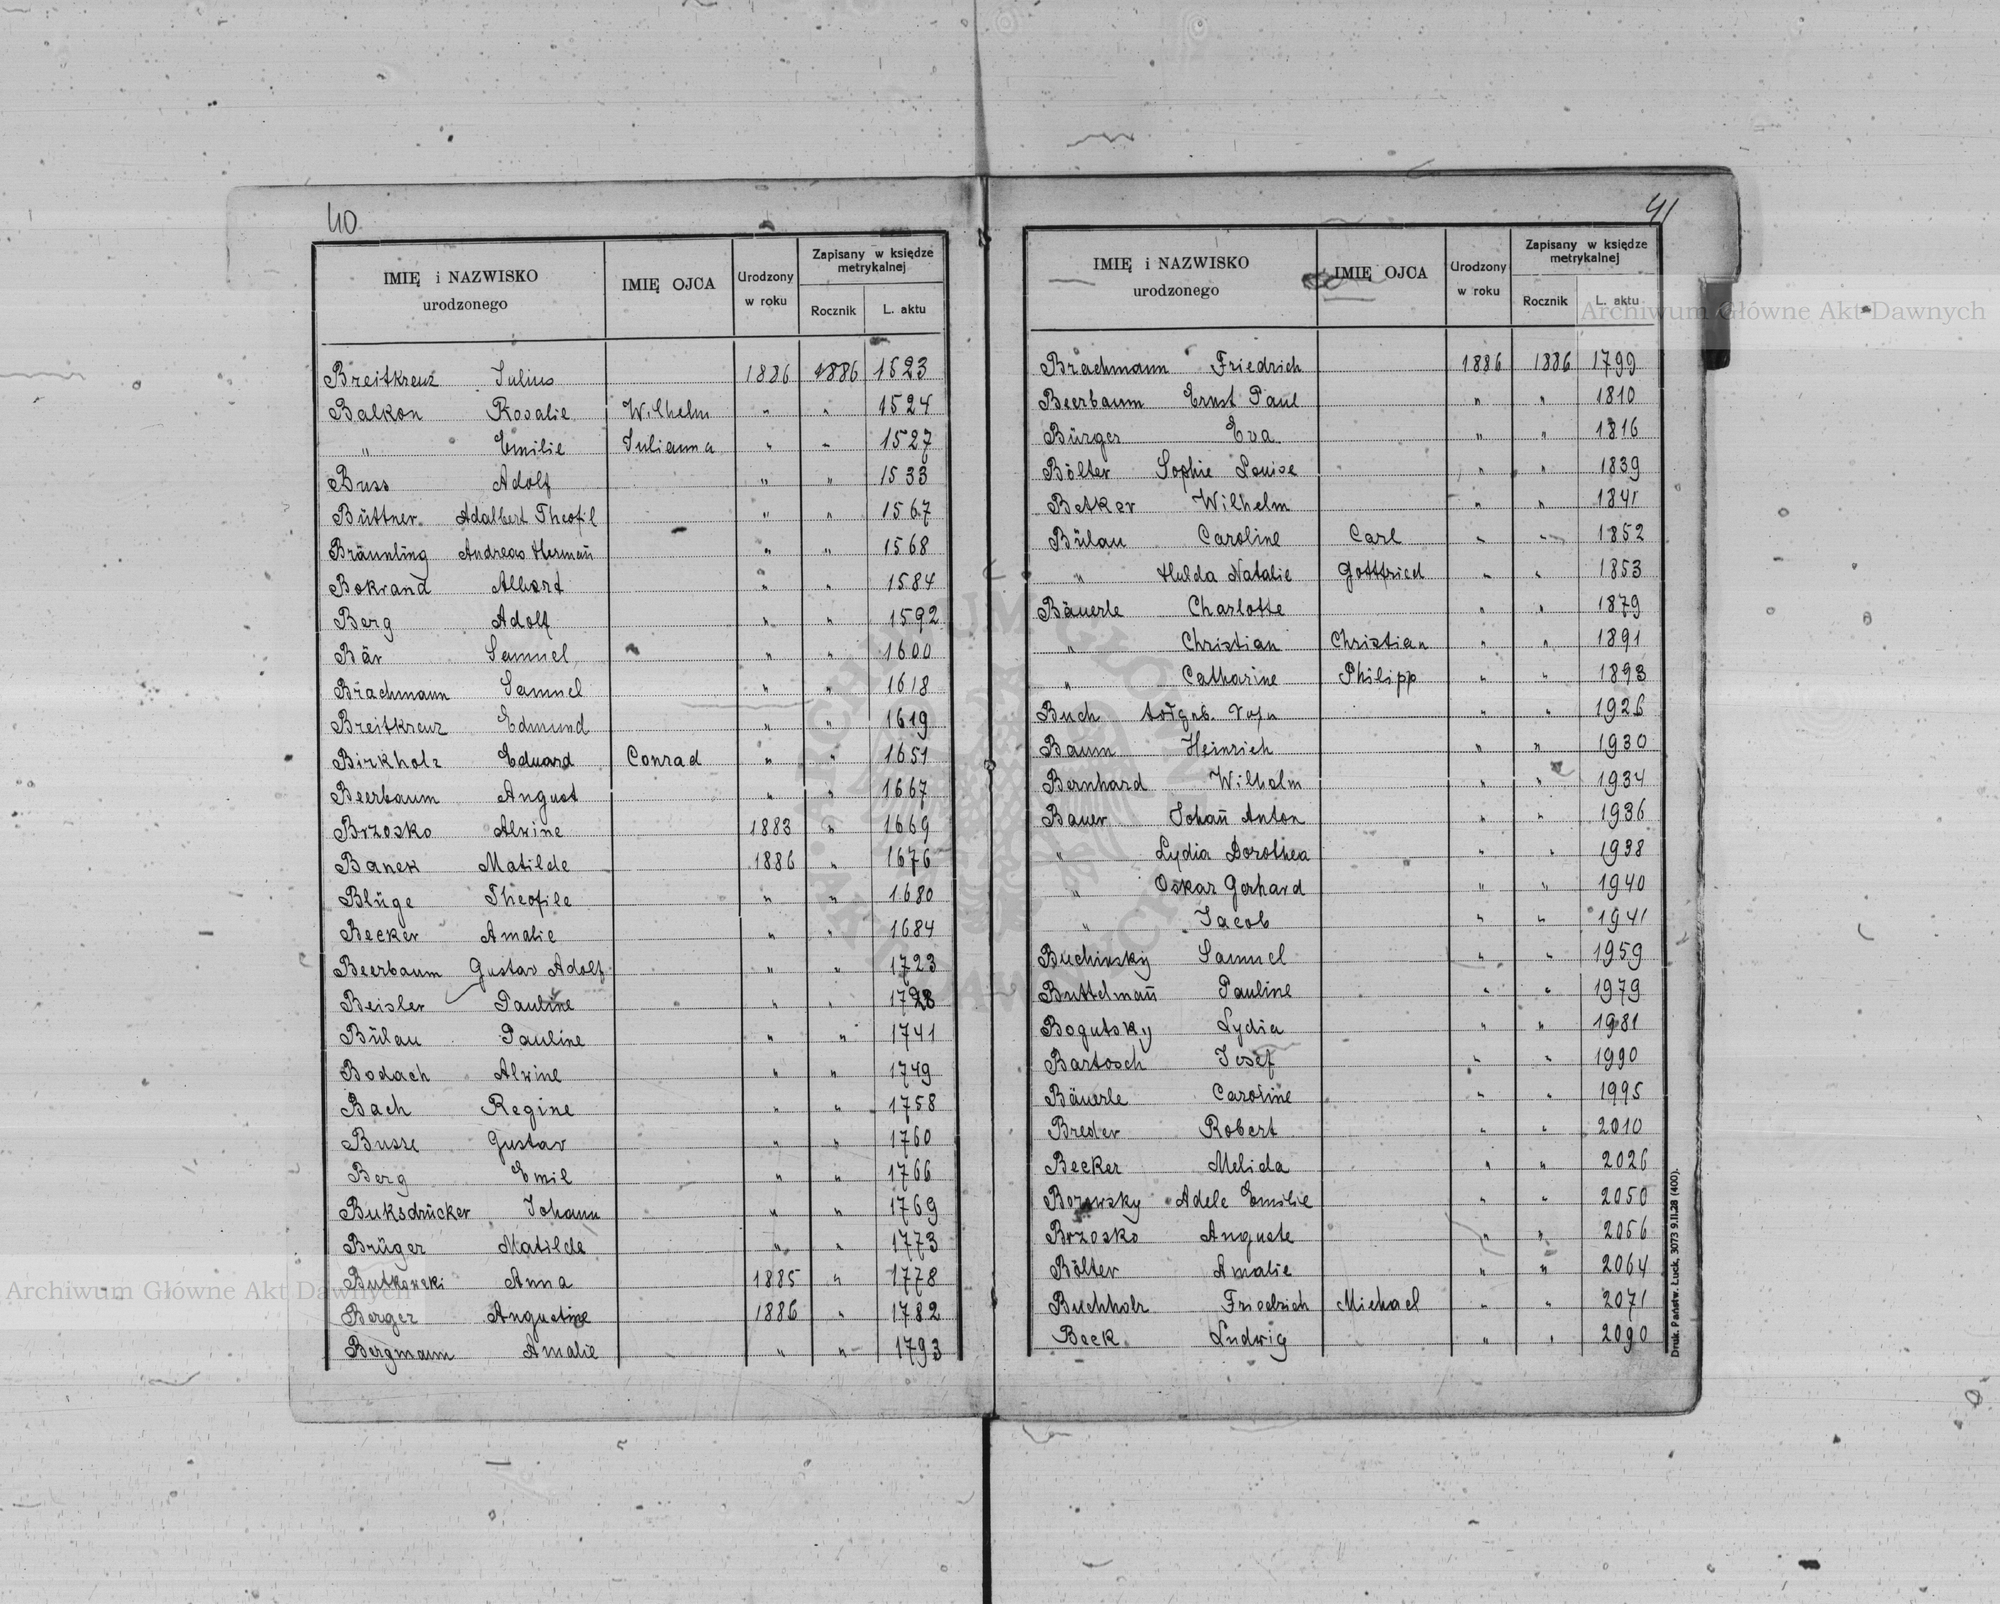 40
IMIĘ i NAZWISKO urodzonego IMIĘ OJCA Urodzony w roku Zapisany w księdze metrykalnej Rocznik L. aktu
Breitkreuz Julius 1886 1886 1523
Balkon Rosalie Wilhelm " " 1524
" Emilie Julianna " " 1527
Buss Adolf " " 1533
Büttner Adalbert Theofil " " 1567
Bräunling Andreas Hermañ " " 1568
Bokrand Albert " " 1584
Berg Adolf " " 1592
Bär Samuel " " 1600
Brachmann Samuel " " 1618
Breitkreuz Edmund " " 1619
Birkholz Eduard Conrad " " 1651
Beerbaum August " " 1667
Brzosko Alwine 1883 " 1669
Banek Matilde 1886 " 1676
Blüge Theofile " " 1680
Becker Amalie " " 1684
Beerbaum Gustav Adolf " " 1723
Beisler Pauline " "
Bülau Pauline " " 1741
Bodach Alwine " " 1749
Bach Regine " " 1758
Busse Gustav " " 1760
Berg Emil " " 1766
Buksdrücker Johann " " 1769
Brüger Matilde " " 1773
Butkowski Anna 1885 " 1778
Berger Augustine 1886 " 1782
Bergmann Amalie " " 1793
41
IMIĘ i NAZWISKO urodzonego IMIĘ OJCA Urodzony w roku Zapisany w księdze metrykalnej Rocznik L. aktu
Brachmann Friedrich 1886 1886 1799
Beerbaum Ernst Paul " " 1810
Bürger Eva " " 1816
Bölter Sophie Louise " " 1839
Betker Wilhelm " " 1841
Bülau Caroline Carl " " 1852
" Hulda Natalie Gottfried " " 1853
Bäuerle Charlotte " " 1879
" Christian Christian " " 1891
" Catharine Philipp " " 1893
Buch " " 1926
Baum Heinrich " " 1930
Bernhard Wilhelm " " 1934
Bauer Johañ Anton " " 1936
" Lydia Dorothea " " 1938
" Oskar Gerhard " " 1940
" Jacob " " 1941
Buchinsky Samuel " " 1959
Buttelmañ Pauline " " 1979
Bogutsky Lydia " " 1981
Bartosch Josef " " 1990
Bäuerle Caroline " " 1995
Breder Robert " " 2010
Becker Melida " " 2026
Borowsky Adele Emilie " " 2050
Brzosko Auguste " " 2056
Bölter Amalie " " 2064
Buchholz Friedrich Michael " " 2071
Beck Ludwig " " 2090
Druk. Państw. Łuck. 3073 9.II.28 (400).
Archiwum Główne Akt Dawnych
Archiwum Główne Akt Dawnych
ARCHIWUM GŁÓWNE AKT DAWNYCH